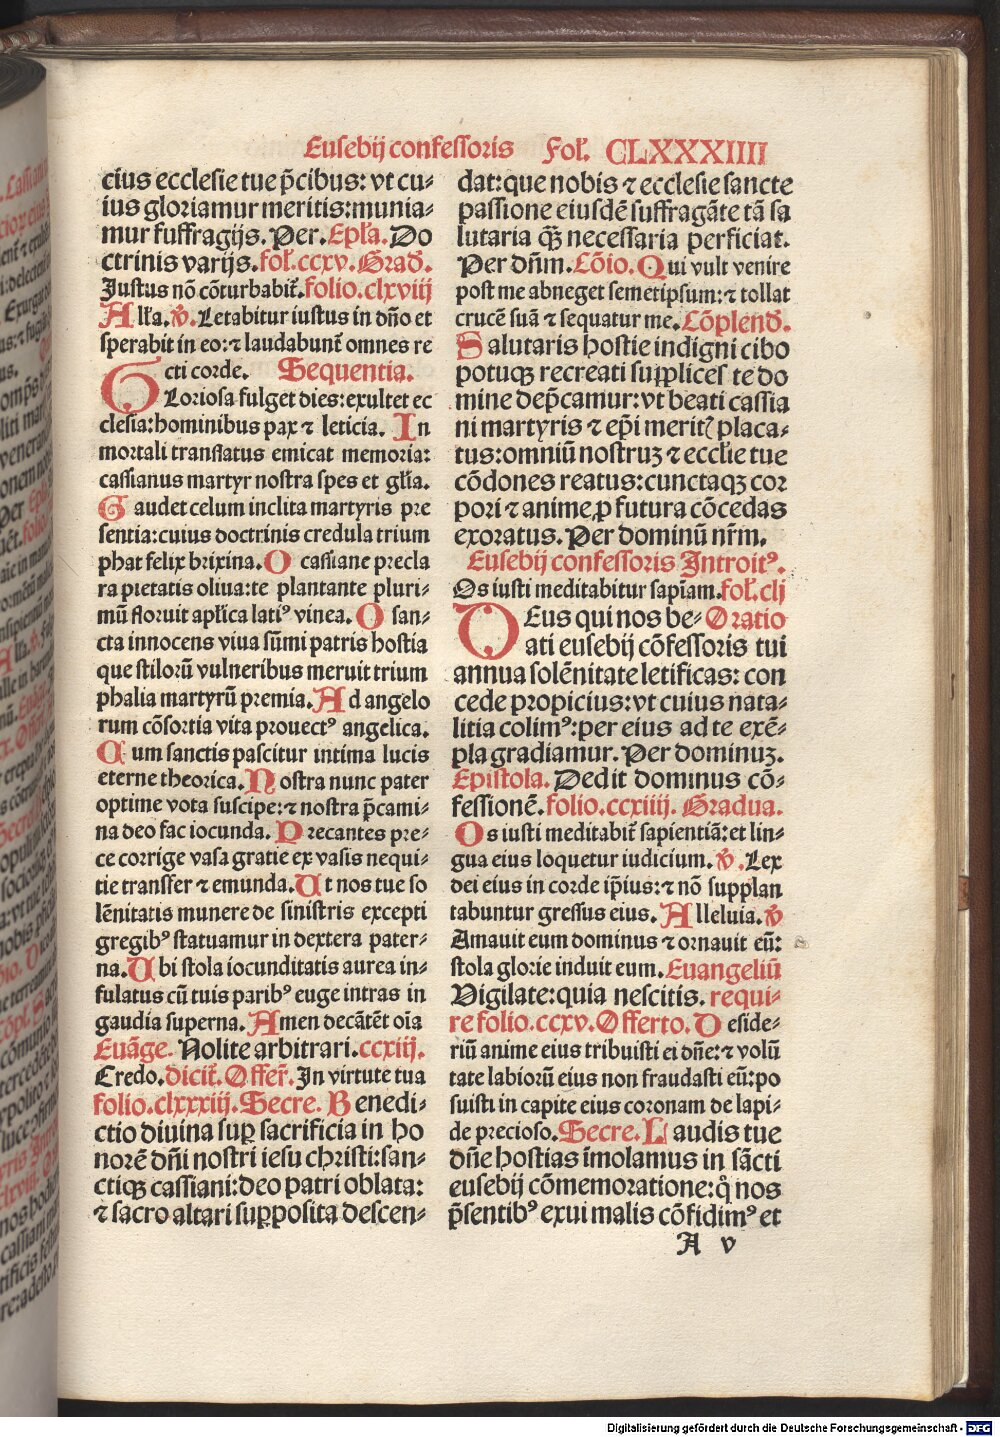 Eusebij confessoris Fol. CLXXXIIII
eius ecclesie tue p̄cibus: vt cu⸗
ius gloriamur meritis: munia⸗
mur suffragijs. Per. Epl̄a. Do
ctrinis varijs. fol. ccxv. Grad.
Justus nō cōturbabit̄. folio. clxviij
All̄a. ℣. Letabitur iustus in dn̄o et
sperabit in eo: ⁊ laudabunt̄ omnes re
cti corde. Sequentia.
Gloriosa fulget dies: exultet ec
clesia: hominibus pax ⁊ leticia. In
mortali translatus emicat memoria:
cassianus martyr nostra spes et gl̄ia.
Gaudet celum inclita martyris pre
sentia: cuius doctrinis credula trium
phat felix brixina. O cassiane precla
ra pietatis oliua: te plantante pluri⸗
mū floruit apl̄ica latiꝰ vinea. O san⸗
cta innocens viua sūmi patris hostia
que stilorū vulneribus meruit trium
phalia martyrū premia. Ad angelo
rum cōsortia vita prouectꝰ angelica.
Cum sanctis pascitur intima lucis
eterne theorica. Nostra nunc pater
optime vota suscipe: ⁊ nostra p̄cami⸗
na deo fac iocunda. Precantes pre⸗
ce corrige vasa gratie ex vasis nequi⸗
tie transfer ⁊ emunda. Ut nos tue so
lēnitatis munere de sinistris excepti
gregibꝰ statuamur in dextera pater⸗
na. Ubi stola iocunditatis aurea in⸗
fulatus cū tuis paribꝰ euge intras in
gaudia superna. Amen decātēt oīa
Euāge. Nolite arbitrari. ccxiij.
Credo. dicit̄. Offer̄. In virtute tua
folio. clxxxiij. Secre. Benedi⸗
ctio diuina suꝑ sacrificia in ho
norē dn̄i nostri iesu christi: san⸗
ctiqꝫ cassiani: deo patri oblata:
⁊ sacro altari suꝑposita descen⸗
dat: que nobis ⁊ ecclesie sancte
passione eiusdē suffragāte tā sa
lutaria qꝫ̄ necessaria perficiat.
Per dn̄m. Cōio. Qui vult venire
post me abneget semetipsum: ⁊ tollat
crucē suā ⁊ sequatur me. Cōplend̄.
Salutaris hostie indigni cibo
potuqꝫ recreati suꝑplices te do
mine dep̄camur: vt beati cassia
ni martyris ⁊ ep̄i merit̄ placa⸗
tus: omniū nostruꝫ ⁊ eccl̄ie tue
cōdones reatus: cunctaqꝫ cor
pori ⁊ anime ꝓfutura cōcedas
exoratus. Per dominū nr̄m.
Eusebij confessoris Introitꝰ.
Os iusti meditabitur sapīam. fol. clj
Deus qui nos be⸗ Oratio
ati eusebij cōfessoris tui
annua solēnitate letificas: con
cede propicius: vt cuius nata⸗
litia colimꝰ: per eius ad te exē⸗
pla gradiamur. Per dominuꝫ.
Epistola. Dedit dominus cō⸗
fessionē. folio. ccxiiij. Gradua.
Os iusti meditabit̄ sapientiā: et lin⸗
gua eius loquetur iudicium. ℣. Lex
dei eius in corde ip̄ius: ⁊ nō supplan
tabuntur gressus eius. Alleluia. ℣
Amauit eum dominus ⁊ ornauit eū:
stola glorie induit eum. Euangeliū
Vigilate: quia nescitis. requi⸗
re folio. ccxv. Offerto. Deside⸗
riū anime eius tribuisti ei dn̄e: ⁊ volū
tate labiorū eius non fraudasti eū: po
suisti in capite eius coronam de lapi⸗
de precioso. Secre. Laudis tue
dn̄e hostias īmolamus in sācti
eusebij cōmemoratione: q̄ nos
p̄sentibꝰ exui malis cōfidimꝰ et
A v
Digitalisierung gefördert durch die Deutsche Forschungsgemeinschaft - DFG